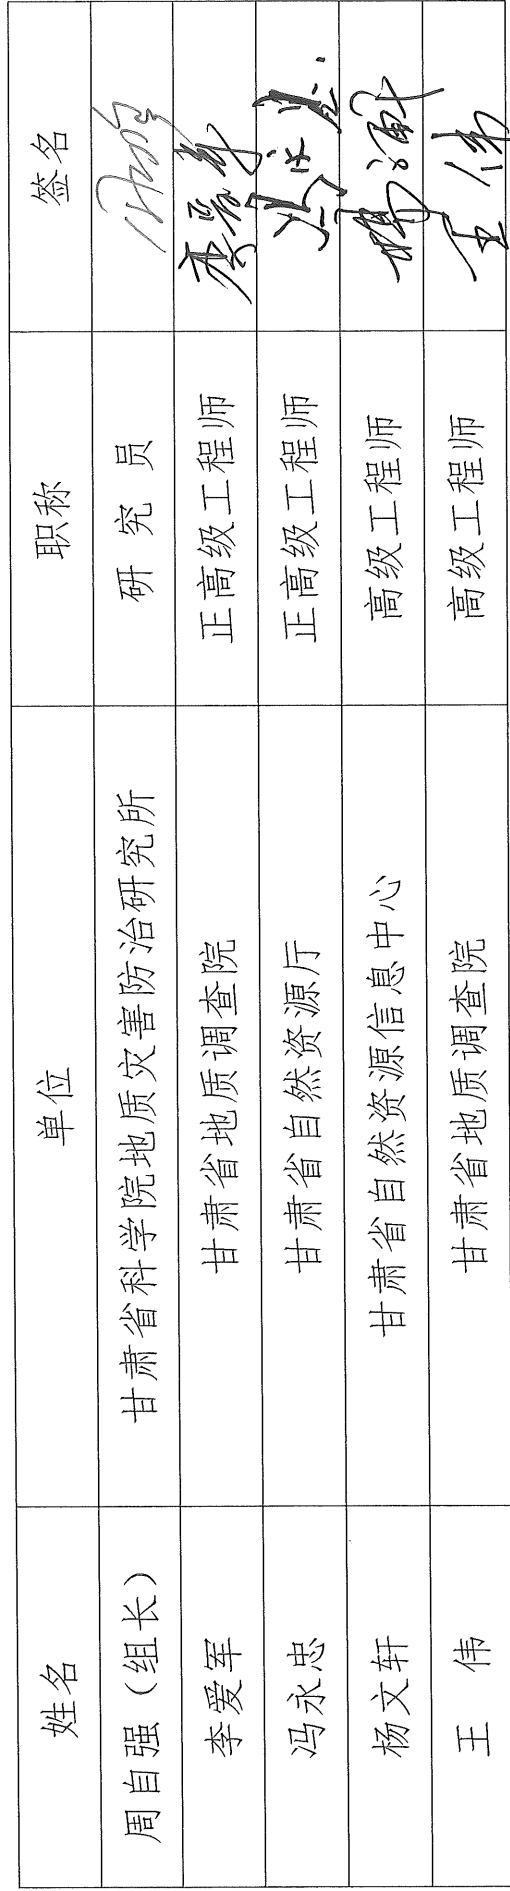 姓名 单位 职称 签名
周自强（组长） 甘肃省科学院地质灾害防治研究所 研究员
李爱军 甘肃省地质调查院 正高级工程师 李爱军
冯永忠 甘肃省自然资源厅 正高级工程师 冯永忠
杨文轩 甘肃省自然资源信息中心 高级工程师
王伟 甘肃省地质调查院 高级工程师 王伟